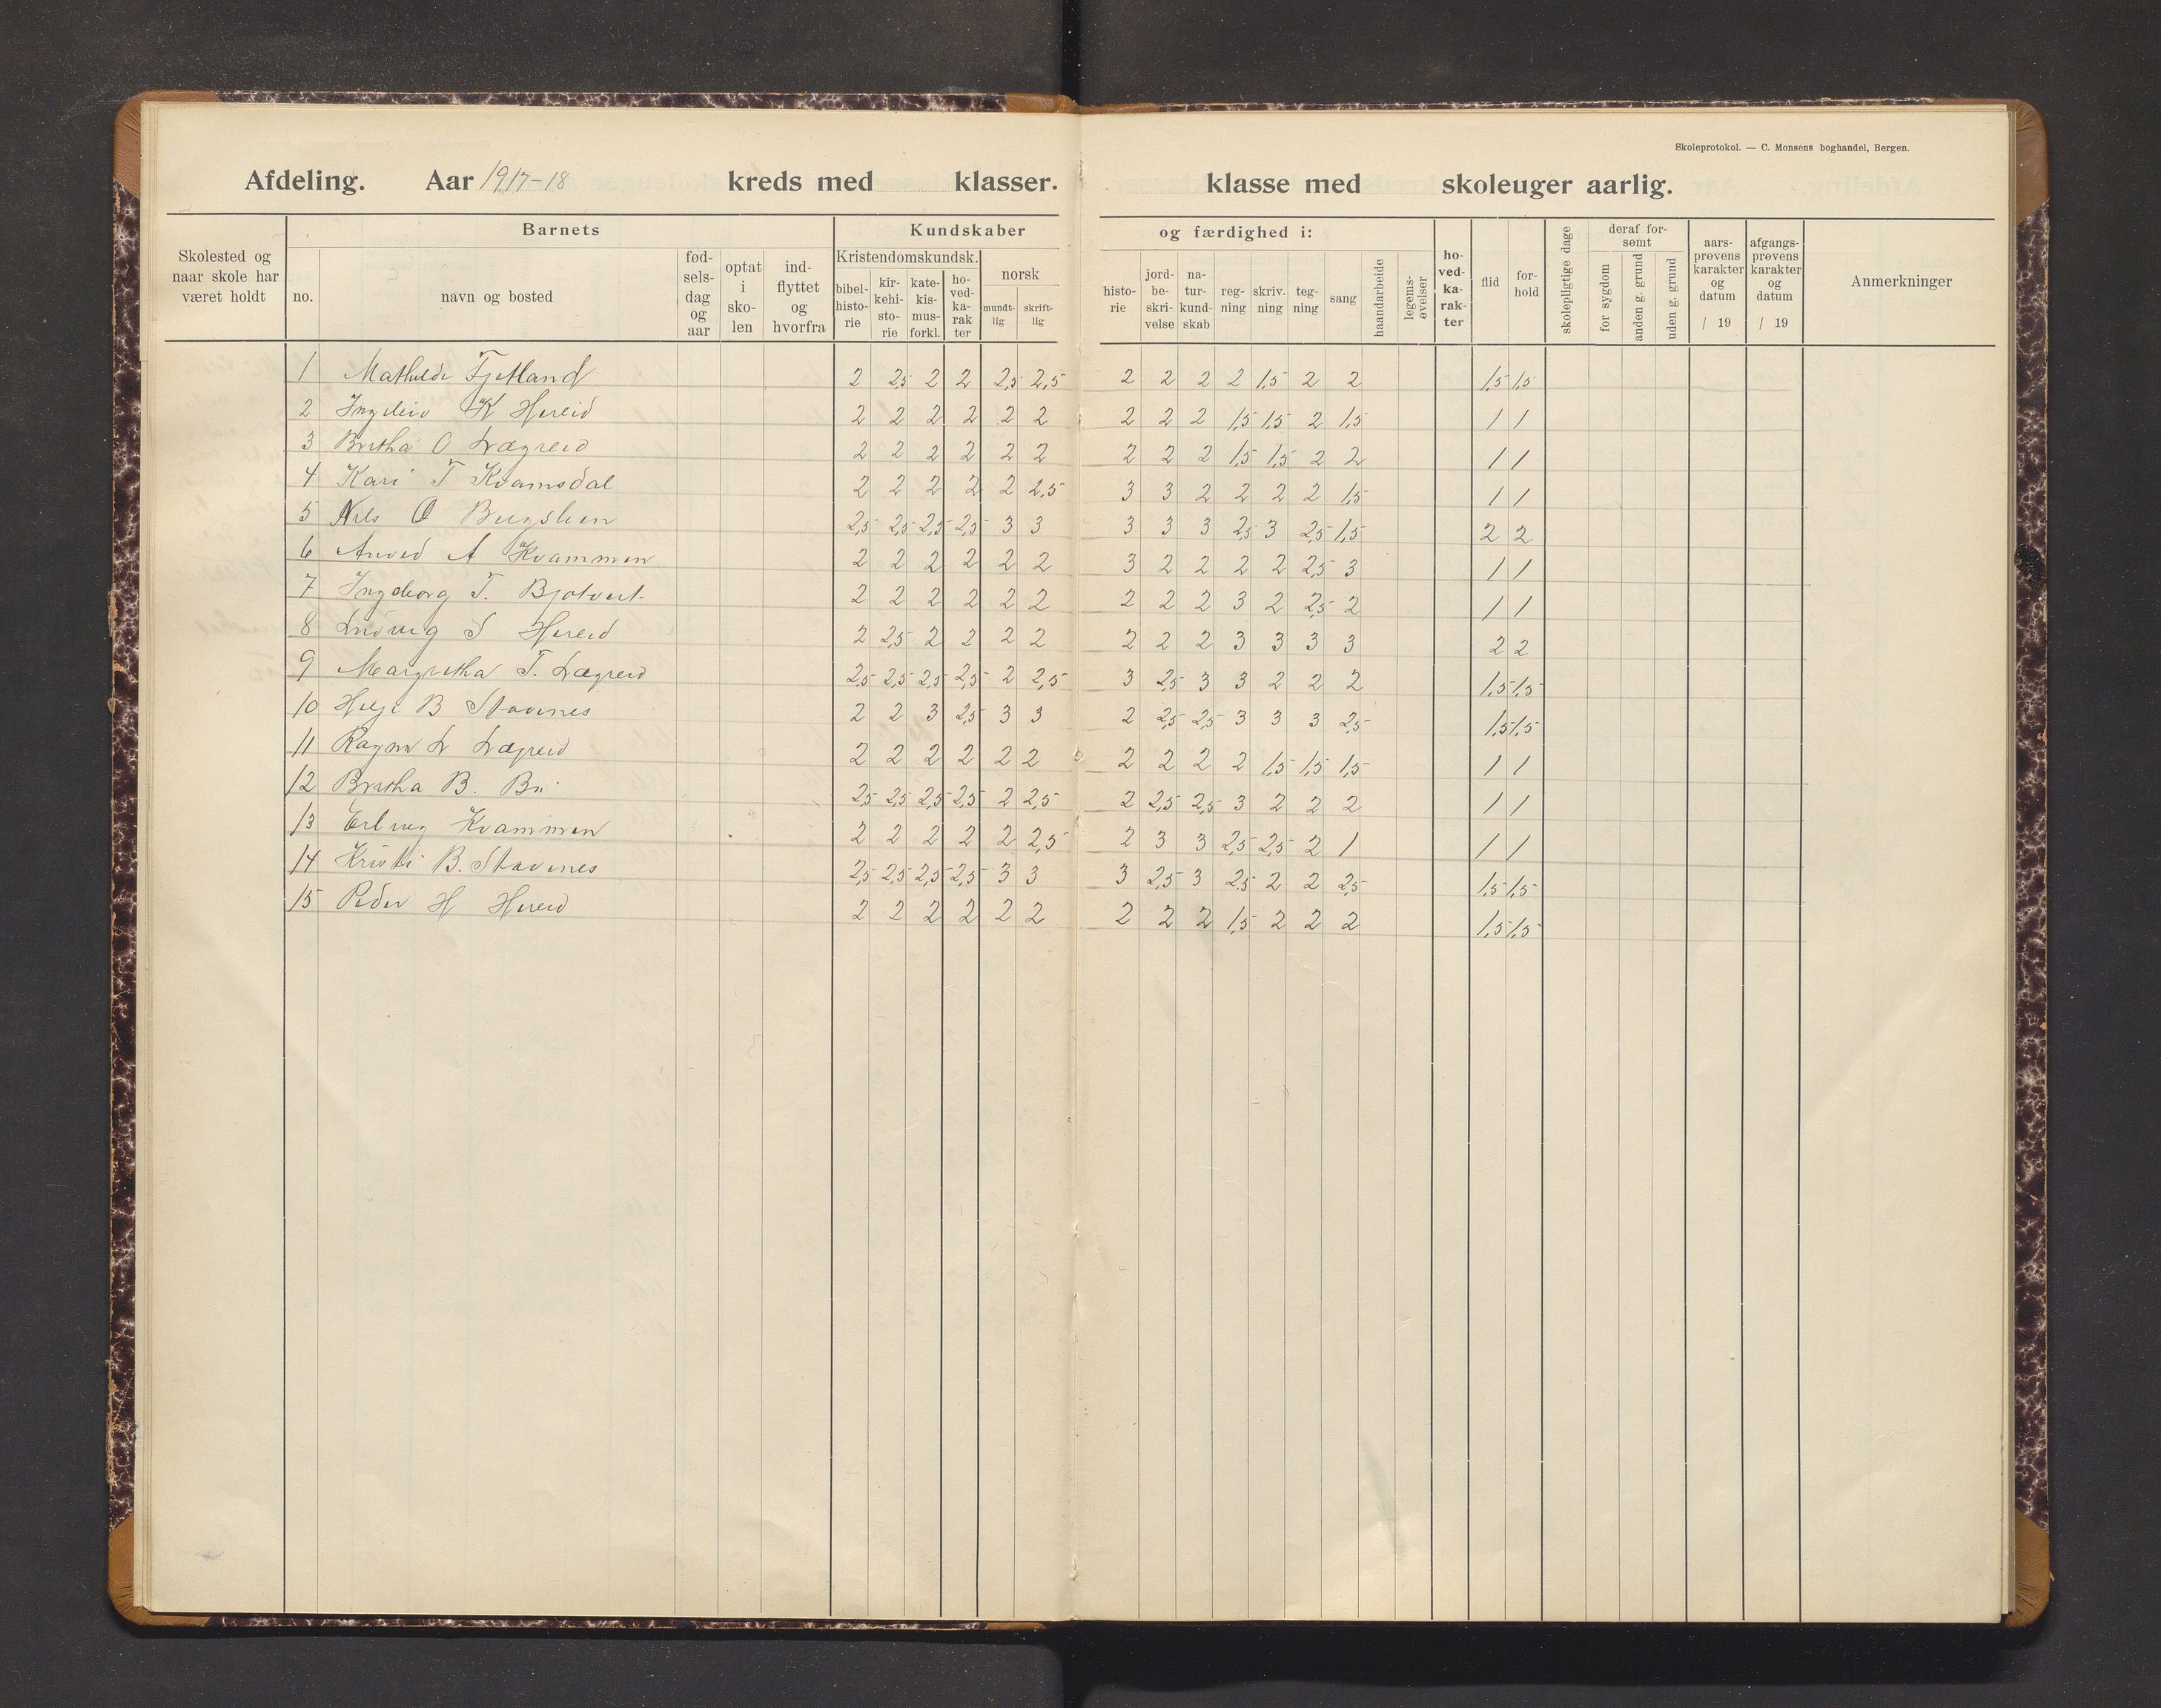 Skoleprotokol. — C. Monsens boghandel, Bergen.
Afdeling. Aar 1917-18 kreds med klasser. klasse med skoleuger aarlig.
Skolested og naar skole har været holdt
Barnets
no.
navn og bosted
fød-sels-dag og aar
optat i sko-len
ind-flyttet og hvorfra
Kundskaber og færdighed i:
Kristendomskundsk.
bibel-histo-rie
kir-kehi-sto-rie
kate-kis-mus-forkl.
ho-ved-ka-rak ter
norsk
mundt-lig
skrift-lig
histo-rie
jord-be-skri-velse
na-tur-kund-skab
reg-ning
skriv-ning
teg-ning
sang
haandarbeide
legems-øvelser
ho-ved-ka-rak-ter
flid
for-hold
skolepligtige dage
deraf for-sømt
for sygdom
anden g. grund
uden g. grund
aars-prøvens karakter og datum / 19
afgangs-prøvens karakter og datum / 19
Anmerkninger
1 Mathilde Tjetland 2 2,5 2 2 2,5 2,5 2 2 2 2 1,5 2 2 1,5 1,5
2 K Hereid 2 2 2 2 2 2 2 2 2 1,5 1,5 2 1,5 1 1
3 Britha O Lægreid 2 2 2 2 2 2 2 2 2 1,5 1,5 2 2 1 1
4 Kari T Kvamsdal 2 2 2 2 2 2,5 3 3 2 2 2 2 1,5 1 1
5 Nils O 2,5 2,5 2,5 2,5 3 3 3 3 3 2,5 3 2,5 1,5 2 2
6 A Kvammen 2 2 2 2 2 2 3 2 2 2 2 2,5 3 1 1
7 Ingeborg T. Bjotveit 2 2 2 2 2 2 2 2 2 3 2 2,5 2 1 1
8 Ludvig S Hereid 2 2,5 2 2 2 2 2 2 2 3 3 3 3 2 2
9 Margretha T. Lægreid 2,5 2,5 2,5 2,5 2 2,5 3 2,5 3 3 2 2 2 1,5 1,5
10 Helge B Stavenes 2 2 3 2,5 3 3 2 2,5 2,5 3 3 3 2,5 1,5 1,5
11 Ragna L Lægreid 2 2 2 2 2 2 2 2 2 2 1,5 1,5 1,5 1 1
12 Britha B. Bu 2,5 2,5 2,5 2,5 2 2,5 2 2,5 2,5 3 2 2 2 1 1
13 Kvammen 2 2 2 2 2 2,5 2 3 3 2,5 2,5 2 1 1 1
14 Kristi B. Stavenes 2,5 2,5 2,5 2,5 3 3 3 2,5 3 2,5 2 2 2,5 1,5 1,5
15 Peder H Hereid 2 2 2 2 2 2 2 2 2 1,5 2 2 2 1,5 1,5